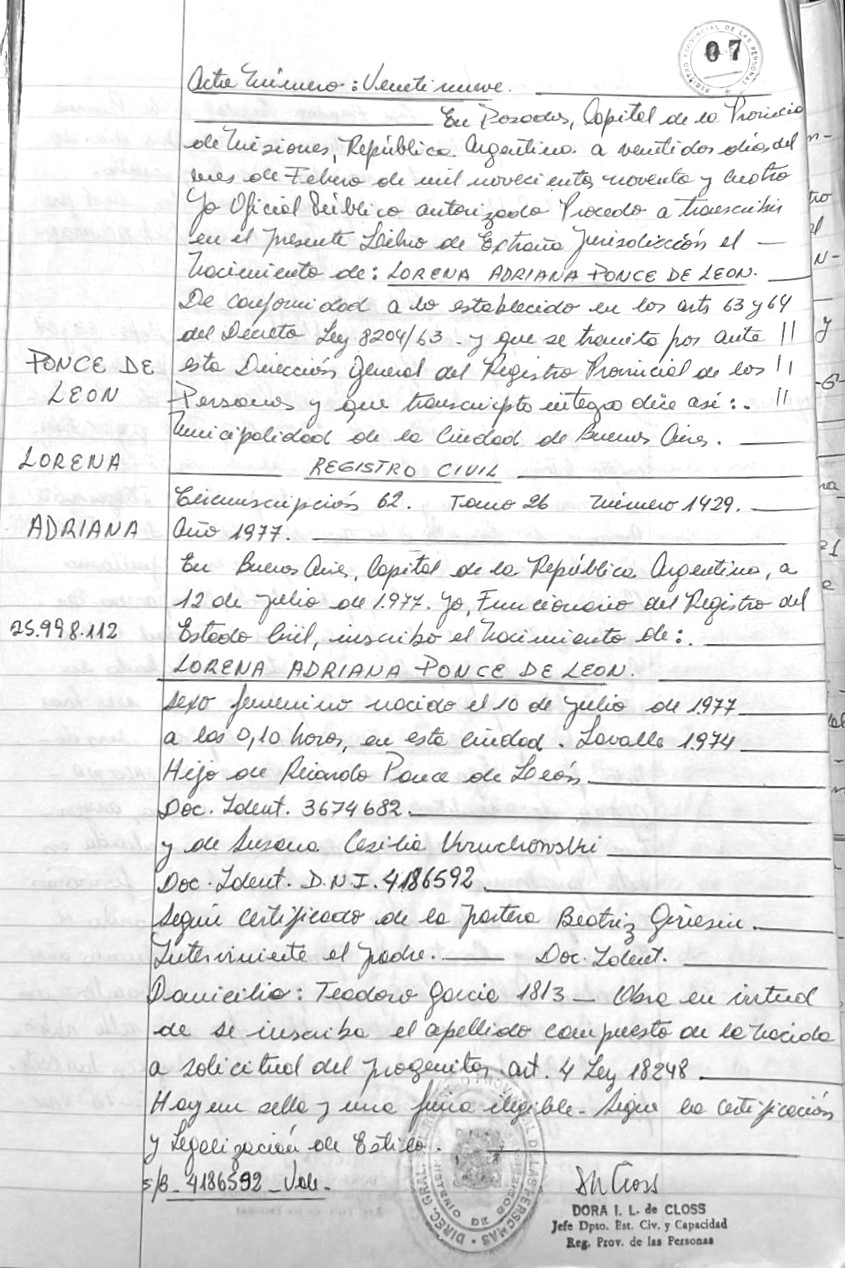 REGISTRO PROVINCIAL DE LAS PERSONAS
07
Acta Número: Veneti nueve.
En Posadas, Capital de la Provincia
de Misiones, República Argentina a ventidos días del
mes de Febrero de mil novecientos noventa y cuatro
Yo Oficial Público autorizado Procedo a transcribir
en el presente Libro de Extraña Jurisdicción el —
Nacimiento de: LORENA ADRIANA PONCE DE LEON.
De conformidad a lo establecido en los arts 63 y 64
del Decreto Ley 8204/63 - y que se tramita por ante //
PONCE DE LEON
esta Dirección General del Registro Provincial de las //
Personas y que transcripto integro dice así:. //
Municipalidad de la Ciudad de Buenos Aires.
LORENA
REGISTRO CIVIL
Circunscripción 62. Tomo 26 Número 1429.
ADRIANA
Año 1977.
En Buenos Aires, Capital de la República Argentina, a
12 de julio de 1977. Yo, Funcionario del Registro del
25.998.112
Estado Civil, inscribo el Nacimiento de:.
LORENA ADRIANA PONCE DE LEON.
Sexo femenino nacido el 10 de julio de 1977
a las 0,10 hora, en esta ciudad. Lavalle 1974
Hijo de Ricardo Ponce de León
Doc. Ident. 3674682.
y de Susana Cecilia Uruchowski
Doc. Ident. D.N.I. 4186592
Según certificado de la partera Beatriz
Interviniente el padre. — Doc. Ident.
Domicilio: Teodoro García 1813 — Obra en virtud
de se inscriba el apellido compuesto de la nacida
a solicitud del progenitor art. 4 Ley 18248
Hay un sello y una firma ilegible - Sigue la certificación
y Legalización de Estilo.
s/B - 4186592 - Vale -
DIREC. GRAL. PROVINCIAL DE LAS PERSONAS
DORA I. L. de CLOSS
Jefe Dpto. Est. Civ. y Capacidad
Reg. Prov. de las Personas